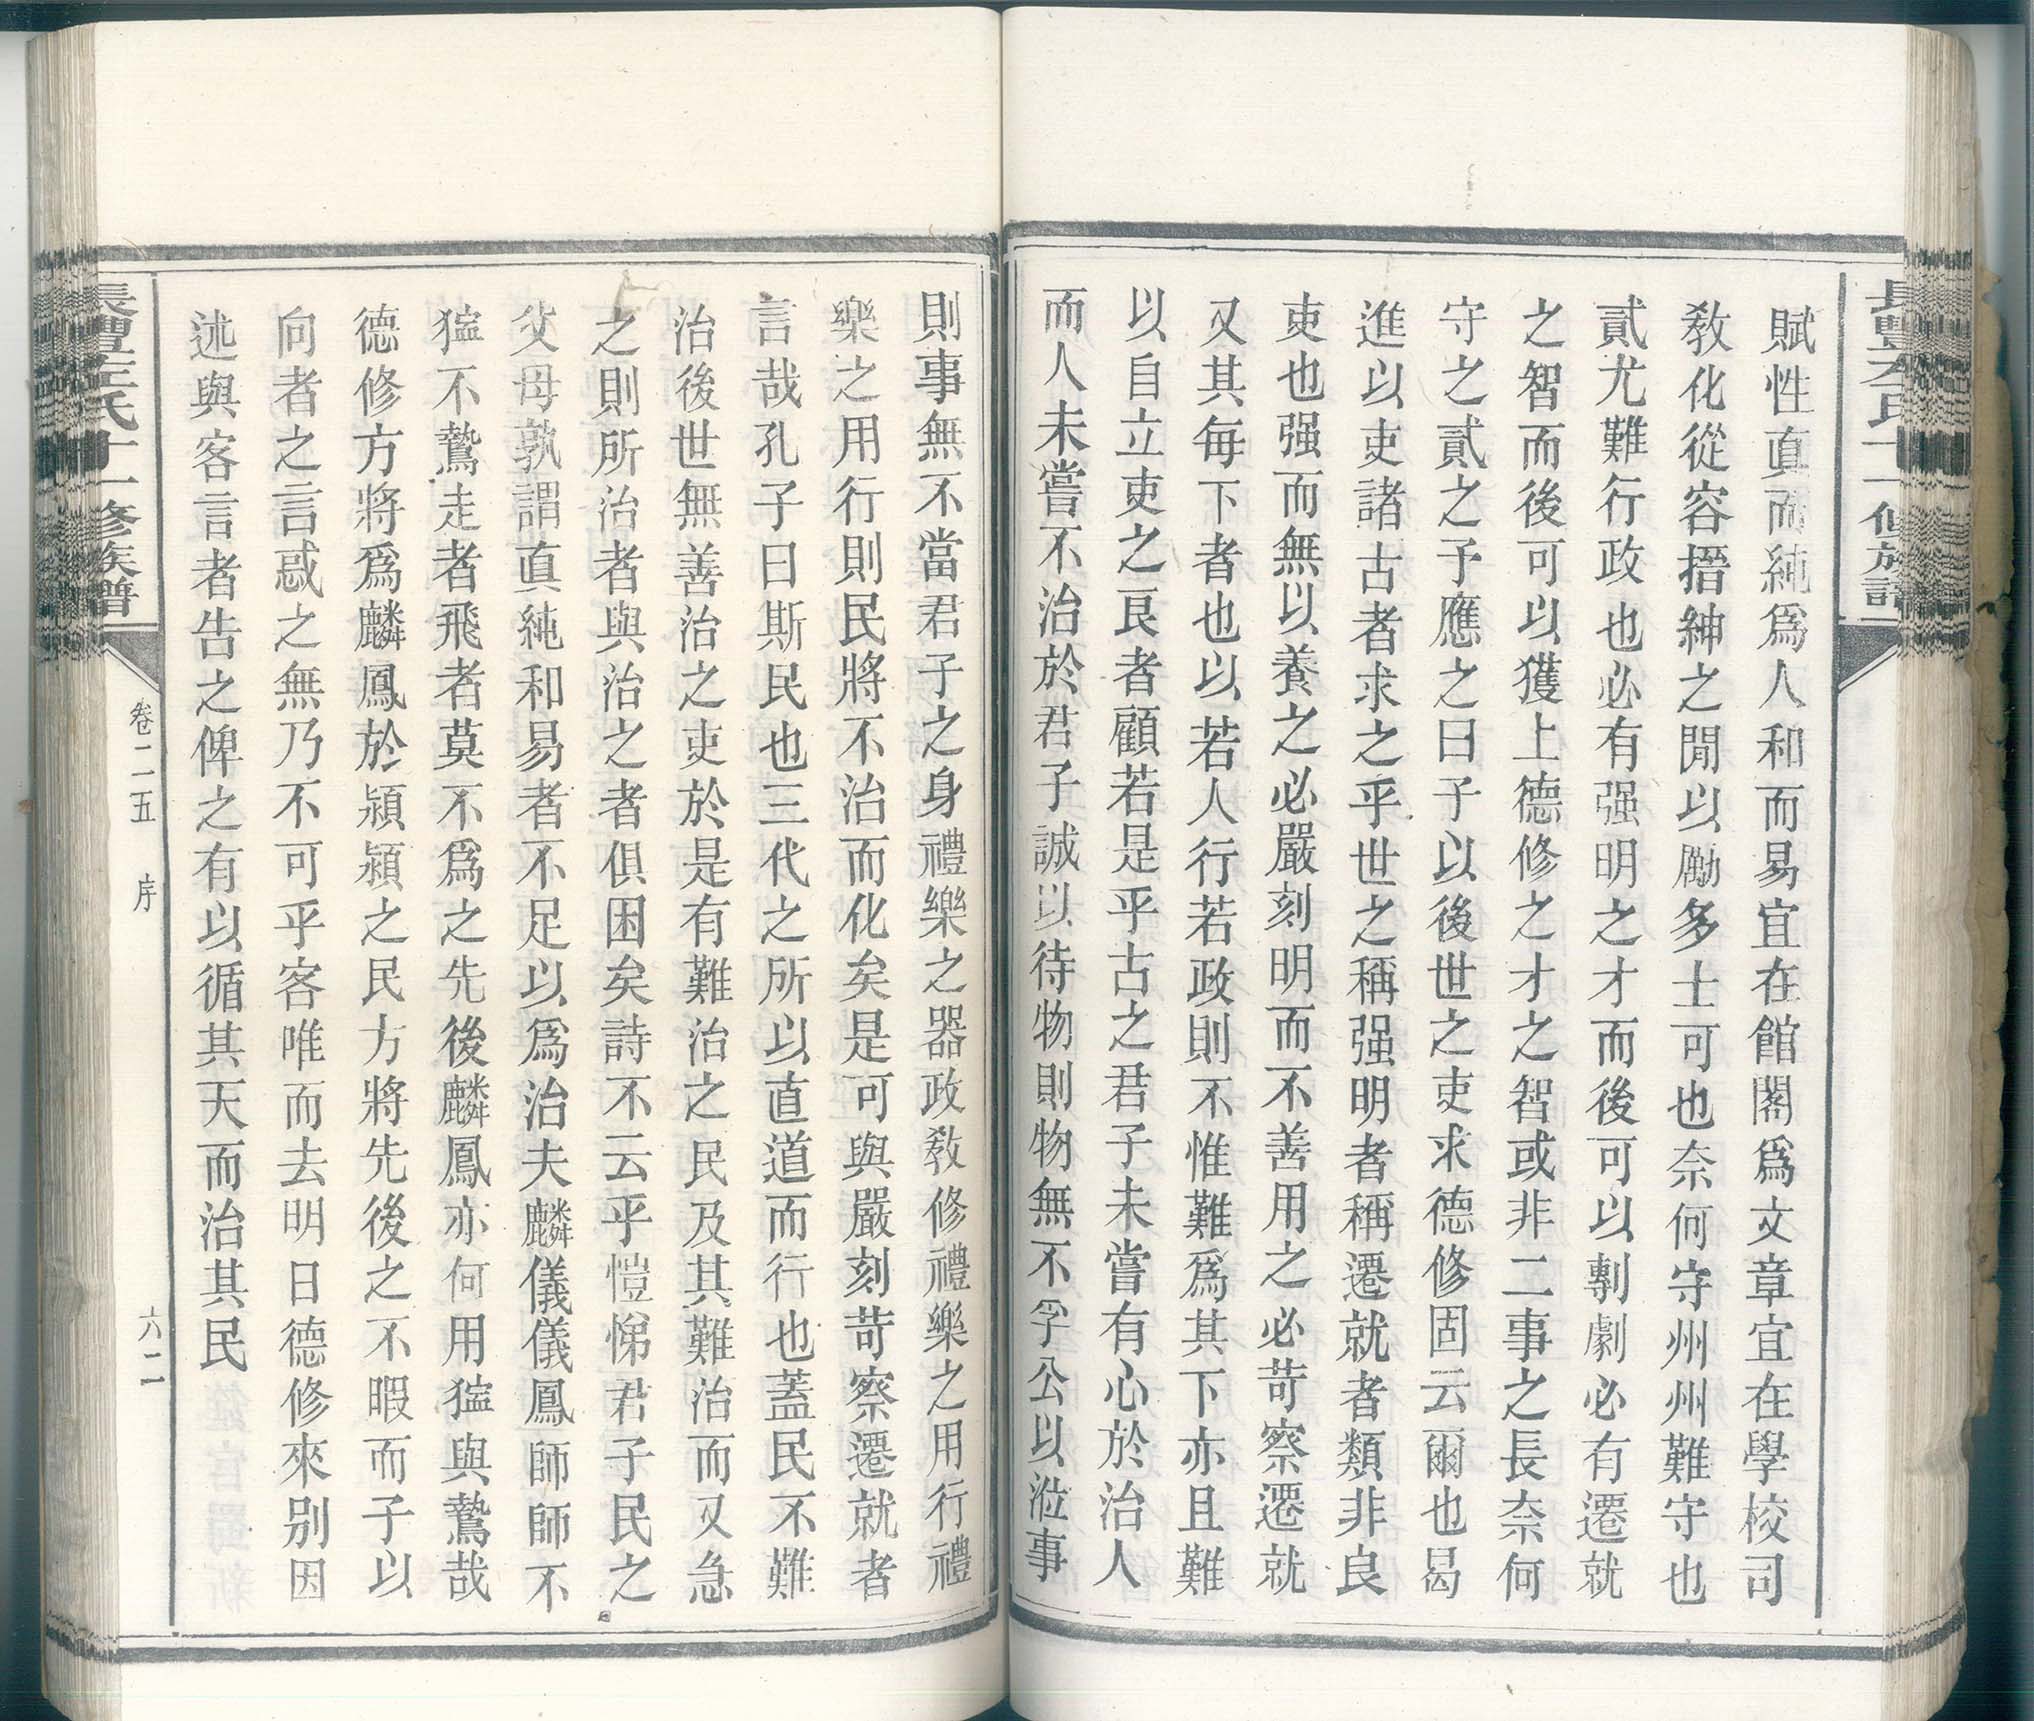 賦性直而純爲人和而易宜在館閣爲文章宜在學校司
敎化從容搢紳之閒以勵多士可也奈何守州州難守也
貳尤難行政也必有强明之才而後可以剸劇必有遷就
之智而後可以獲上德修之才之智或非二事之長奈何
守之貳之予應之曰子以後世之吏求德修固云爾也曷
進以吏諸古者求之乎世之稱强明者稱遷就者類非良
吏也强而無以養之必嚴刻明而不善用之必苛察遷就
又其每下者也以若人行若政則不惟難爲其下亦且難
以自立吏之良者顧若是乎古之君子未嘗有心於治人
而人未嘗不治於君子誠以待物則物無不孚公以涖事
則事無不當君子之身禮樂之器政敎修禮樂之用行禮
樂之用行則民將不治而化矣是可與嚴刻苛察遷就者
言哉孔子曰斯民也三代之所以直道而行也蓋民不難
治後世無善治之吏於是有難治之民及其難治而又急
之則所治者與治之者俱困矣詩不云乎愷悌君子民之
父母孰謂直純和易者不足以爲治夫麟儀儀鳳師師不
猛不鷙走者飛者莫不爲之先後麟鳳亦何用猛與鷙哉
德修方將爲麟鳳於潁潁之民方將先後之不暇而子以
向者之言惑之無乃不可乎客唯而去明日德修來别因
述與客言者告之俾之有以循其天而治其民
長豐左氏十一修族譜
卷二五 序
六二